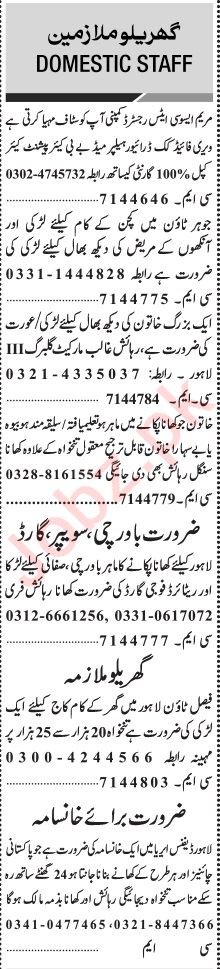 گھریلو ملازمین
DOMESTIC STAFF
مریم ایسوسی ایٹس رجسٹرڈ کمپنی آپ کو سٹاف مہیا کرتی ہے
ویری فائیڈ کک ڈرائیور ہیلپر میڈ بے بی کیئر پیشنٹ کیئر
کپل %100 گارنٹی کیساتھ رابطہ 4745732-0302
سی ایم۔ 7144646
جوہر ٹاؤن میں کچن کے کام کیلئے لڑکی اور
آنکھوں کے مریض کی دیکھ بھال کیلئے لڑکی کی
ضرورت ہے رابطہ 1444828-0331
سی ایم۔ 7144775
ایک بزرگ خاتون کی دیکھ بھال کیلئے لڑکی/عورت
کی ضرورت ہے، رہائش غالب مارکیٹ گلبرگ III
لاہور۔ رابطہ: 4335037-0321
سی۔ایم۔ 7144784
خاتون جو کھانا پکانے میں ماہر ہو تعلیمیافتہ/سلیقہ مند ہو بیوہ
یا بے سہارا خاتون قابل ترجیح معقول تنخواہ کے علاوہ کھانا
سنگل رہائش بھی دی جائیگی 8161554-0328
سی ایم۔ 7144779
ضرورت باورچی، سویپر، گارڈ
لاہور کیلئے کھانا پکانے کا ماہر باورچی، صفائی کیلئے لڑکا
اور ریٹائرڈ فوجی گارڈ کی ضرورت کھانا رہائش فری
0312-6661256, 0331-0617072
سی ایم۔ 7144777
گھریلو ملازمہ
فیصل ٹاؤن لاہور میں گھر کے کام کاج کیلئے ایک
لڑکی کی ضرورت ہے تنخواہ 20 ہزار سے 25 ہزار پر
مہینہ رابطہ 4244566-0300
سی ایم۔ 7144803
ضرورت برائے خانسامہ
لاہور ڈیفنس ایریا میں ایک خانسامہ کی ضرورت ہے جو پاکستانی
چائنیز اور ہر طرح کے کھانے بنانا جانتا ہو 24 گھنٹے ساتھ رہ
سکے مناسب تنخواہ دیجائیگی رہائش اور کھانا بذمہ مالک ہوگا
0341-0477465، 0321-8447366
سی ایم
Jobz.pk